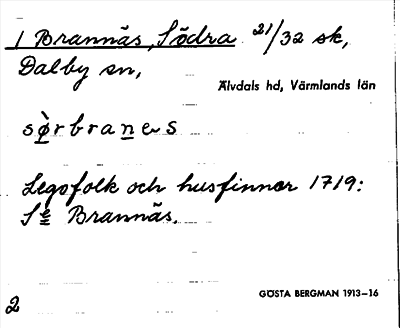 1 Brannäs, Södra 21/32 sk,
Dalby sn,
Älvdals hd, Värmlands län
sø̀rbranes
Legofolk och husfinnar 1719:
Se Brannäs.
GÖSTA BERGMAN 1913–16
2